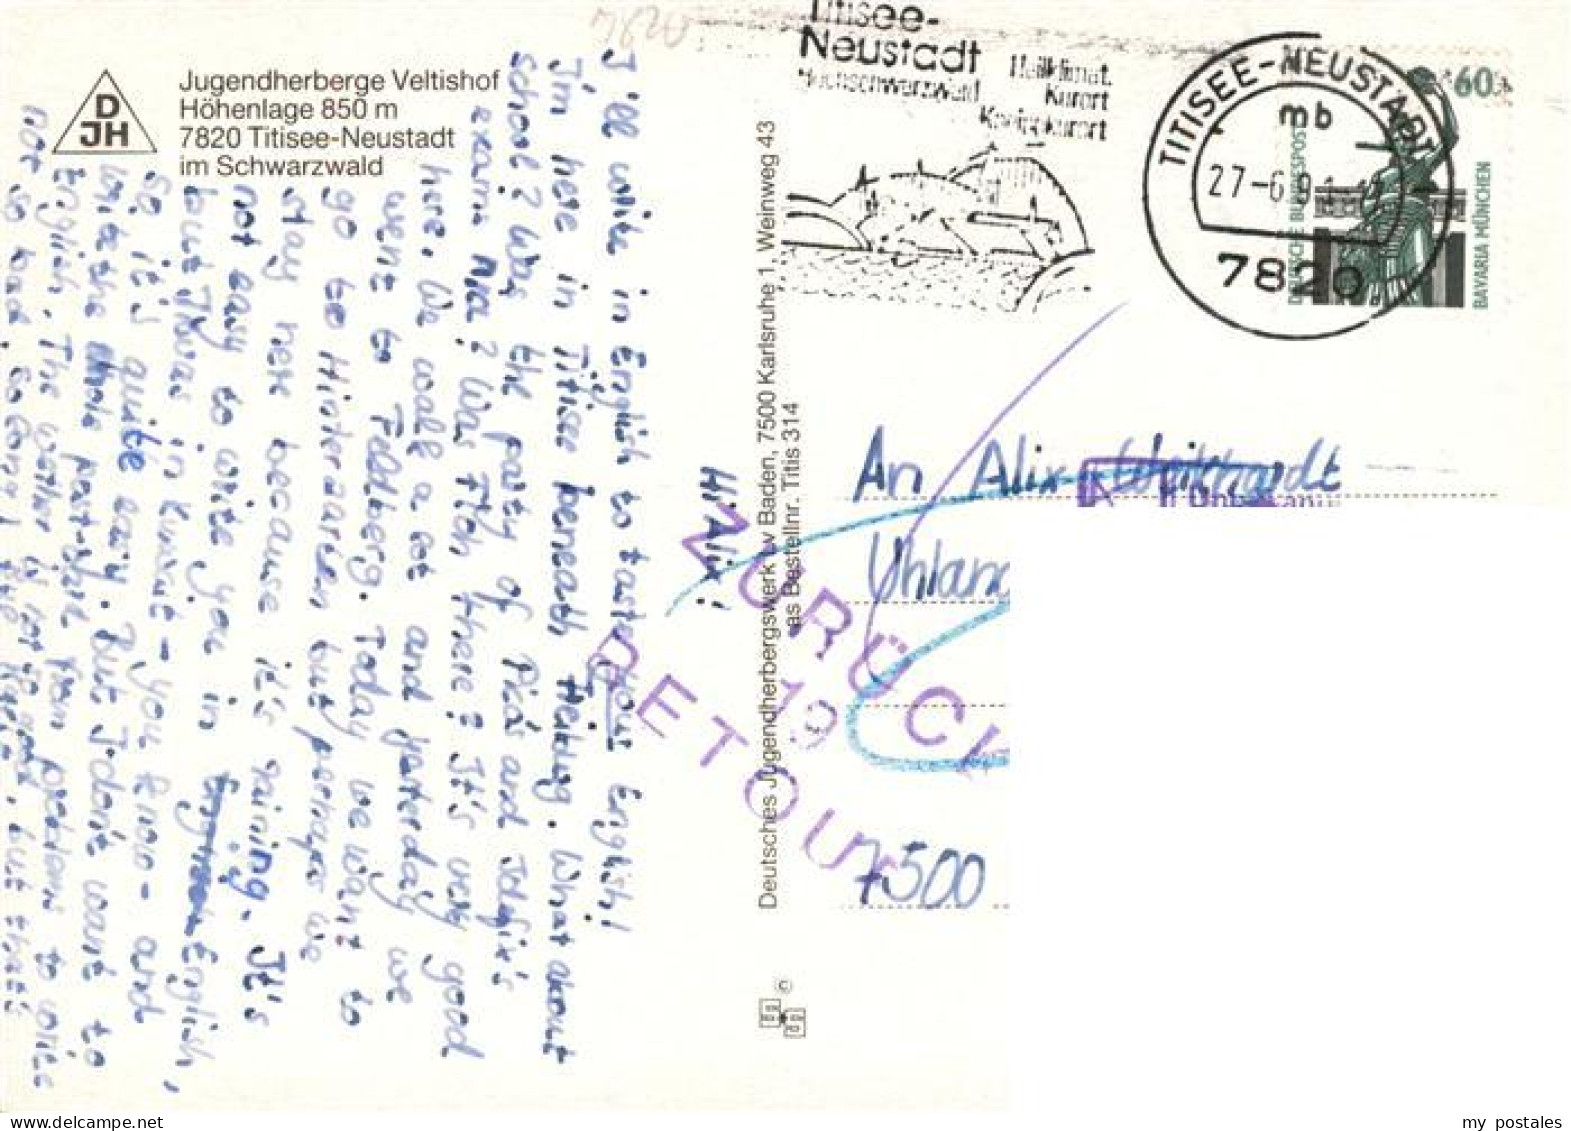 Jugendherberge Veltishof
Höhenlage 850 m
7820 Titisee-Neustadt
im Schwarzwald
D
JH
Hi Alix!
I'll write in English to taste your English!
I'm here in Titisee beneath What about
school? Was the party of Pica's and
exam Was there? It's very good
here. We walk a lot and yesterday we
went to Feldberg. Today we want to
go to Hinterzarten but perhaps we
stay here because it's raining. It's
not easy to write you in English,
but I was in you know - and
so it's quite easy. But I don't want to
write the whole post- from to write
English. The is not so good, but that's
not so bad. So long!
Deutsches Jugendherbergswerk Lv Baden, 7500 Karlsruhe 1, Weinweg 43
as Bestellnr. Titis 314
©
7820
Titisee-
Neustadt
Hochschwarzwald
Heilklimat.
Kurort
Kneippkurort
TITISEE-NEUSTADT
mb
27-6
7820
60
DEUTSCHE BUNDESPOST
BAVARIA MÜNCHEN
An Alix
Uhland
7500
ZURÜCK
19
RETOUR
my_postales